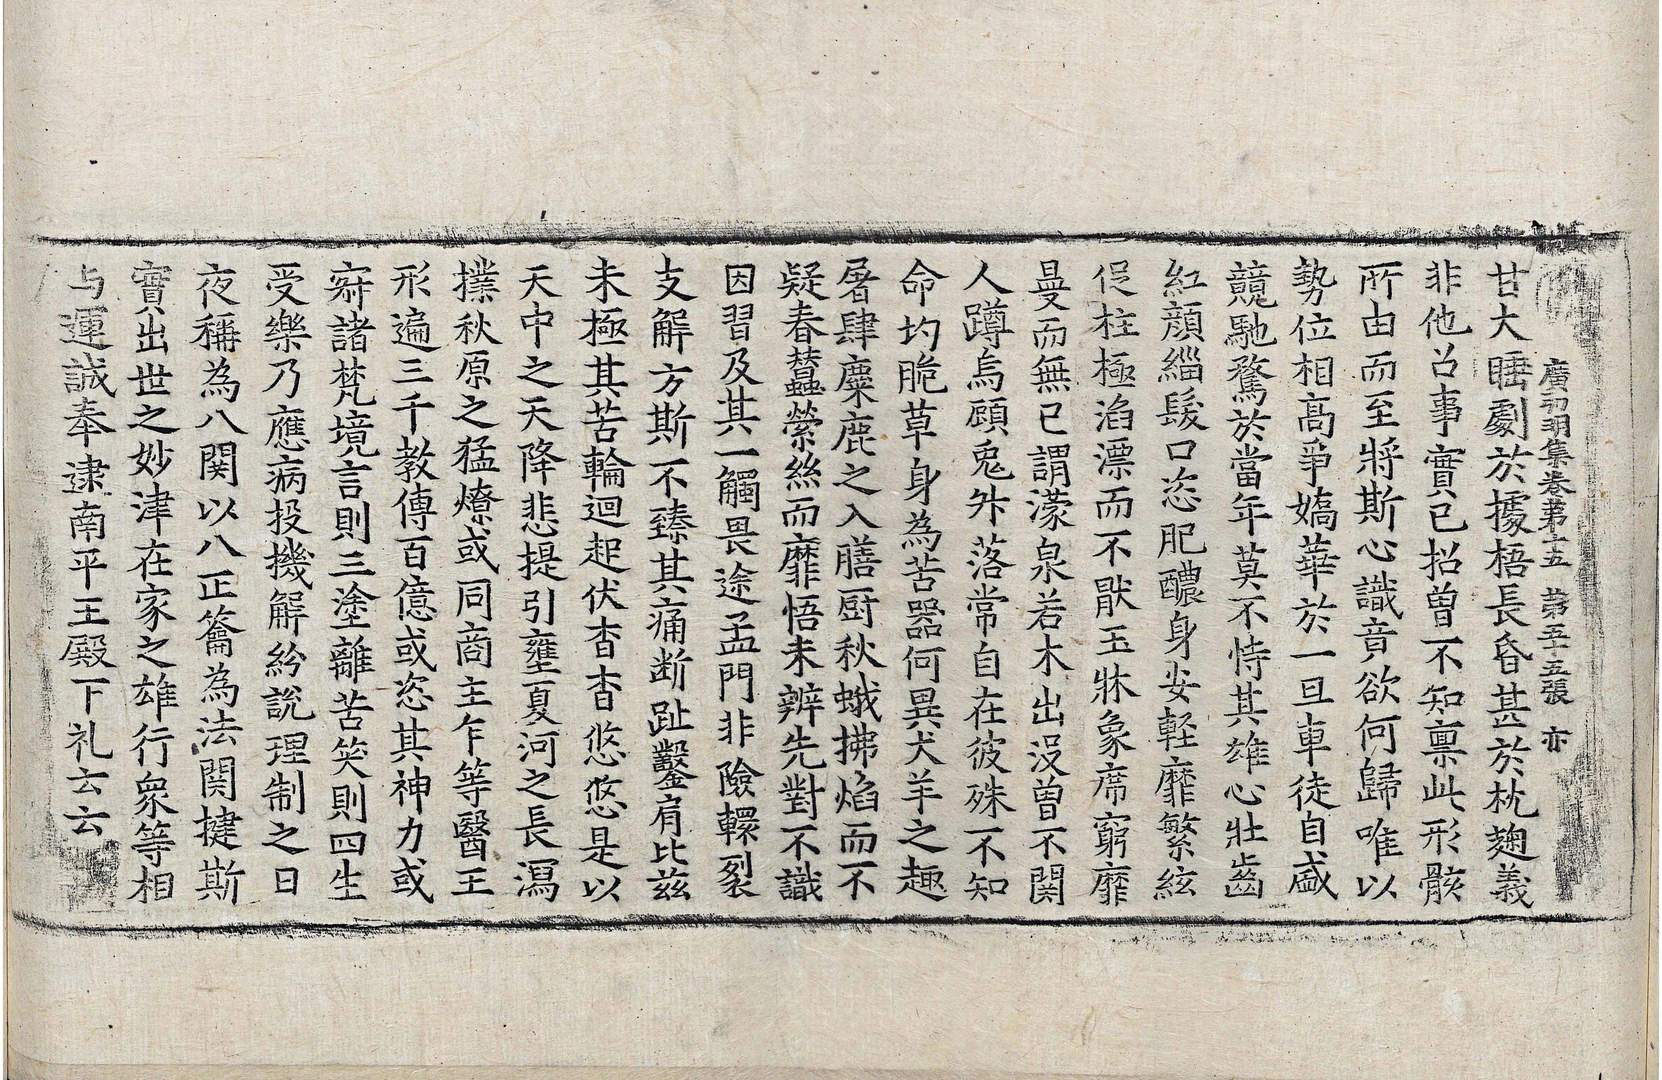 廣弘明集卷第十五　第五十五張　亦
甘大睡劇於據梧長昏甚於枕麹義
非他召事實已招曽不知禀此形骸
所由而至將斯心識竟欲何歸唯以
勢位相髙爭嬌華於一旦車徒自盛
競馳騖於當年莫不恃其雄心壯齒
紅顔緇髮口恣肥醲身安軽靡繁絃
促柱極滔漂而不猒玉牀象席窮靡
曼而無已謂濛泉若木出没曽不関
人蹲烏顧兔升落常自在彼殊不知
命圴脆草身為苦器何異犬羊之趣
屠肆麋鹿之入膳厨秋蛾拂焰而不
疑春蠶縈絲而靡悟未辨先對不識
因習及其一觸畏途孟門非險轘裂
支解方斯不臻其痛断趾鑿肩比兹
未極其苦輪迴起伏杳杳悠悠是以
天中之天降悲提引壅夏河之長瀉
撲秋原之猛燎或同商主乍等醫王
形遍三千教傳百億或恣其神力或
寄諸梵境言則三塗離苦笑則四生
受樂乃應病投機解紛說理制之日
夜稱為八関以八正籥為法関揵斯
實出世之妙津在家之雄行衆等相
与運誠奉逮南平王殿下礼云云